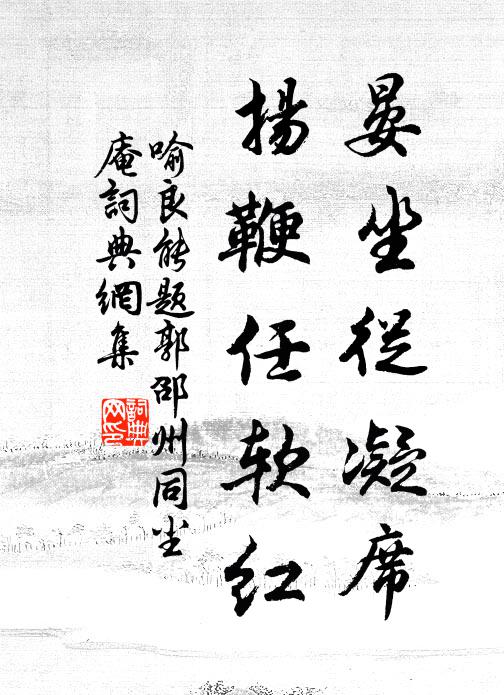 晏坐從凝席
揚鞭任軟紅
喻良能題郭邵州同坐
庵詞典網集
詞典網印